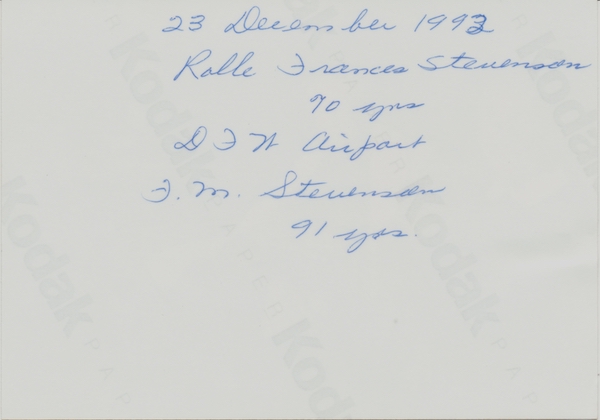 23 December 1993
Rolle Frances Stevenson
70 yrs
DFW Airport
F. M. Stevenson
91 yrs.
Kodak
PAPER
Kodak
Kodak
Kodak
PAPER
Kodak
PAPER